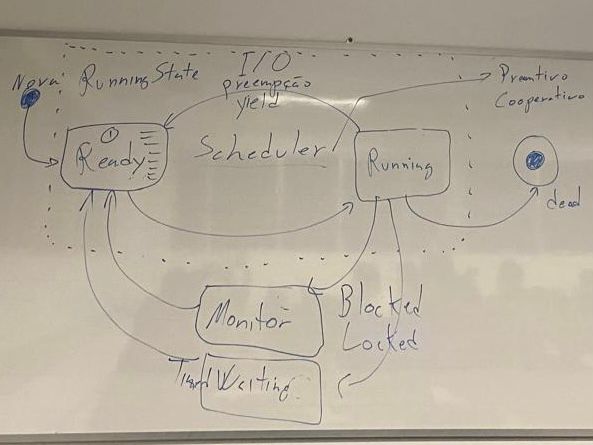 I/O
Nova
Running State
preempção
yield
Preemtivo
Cooperativo
①
Ready
Scheduler
Running
dead
Monitor
Blocked
Locked
Waiting